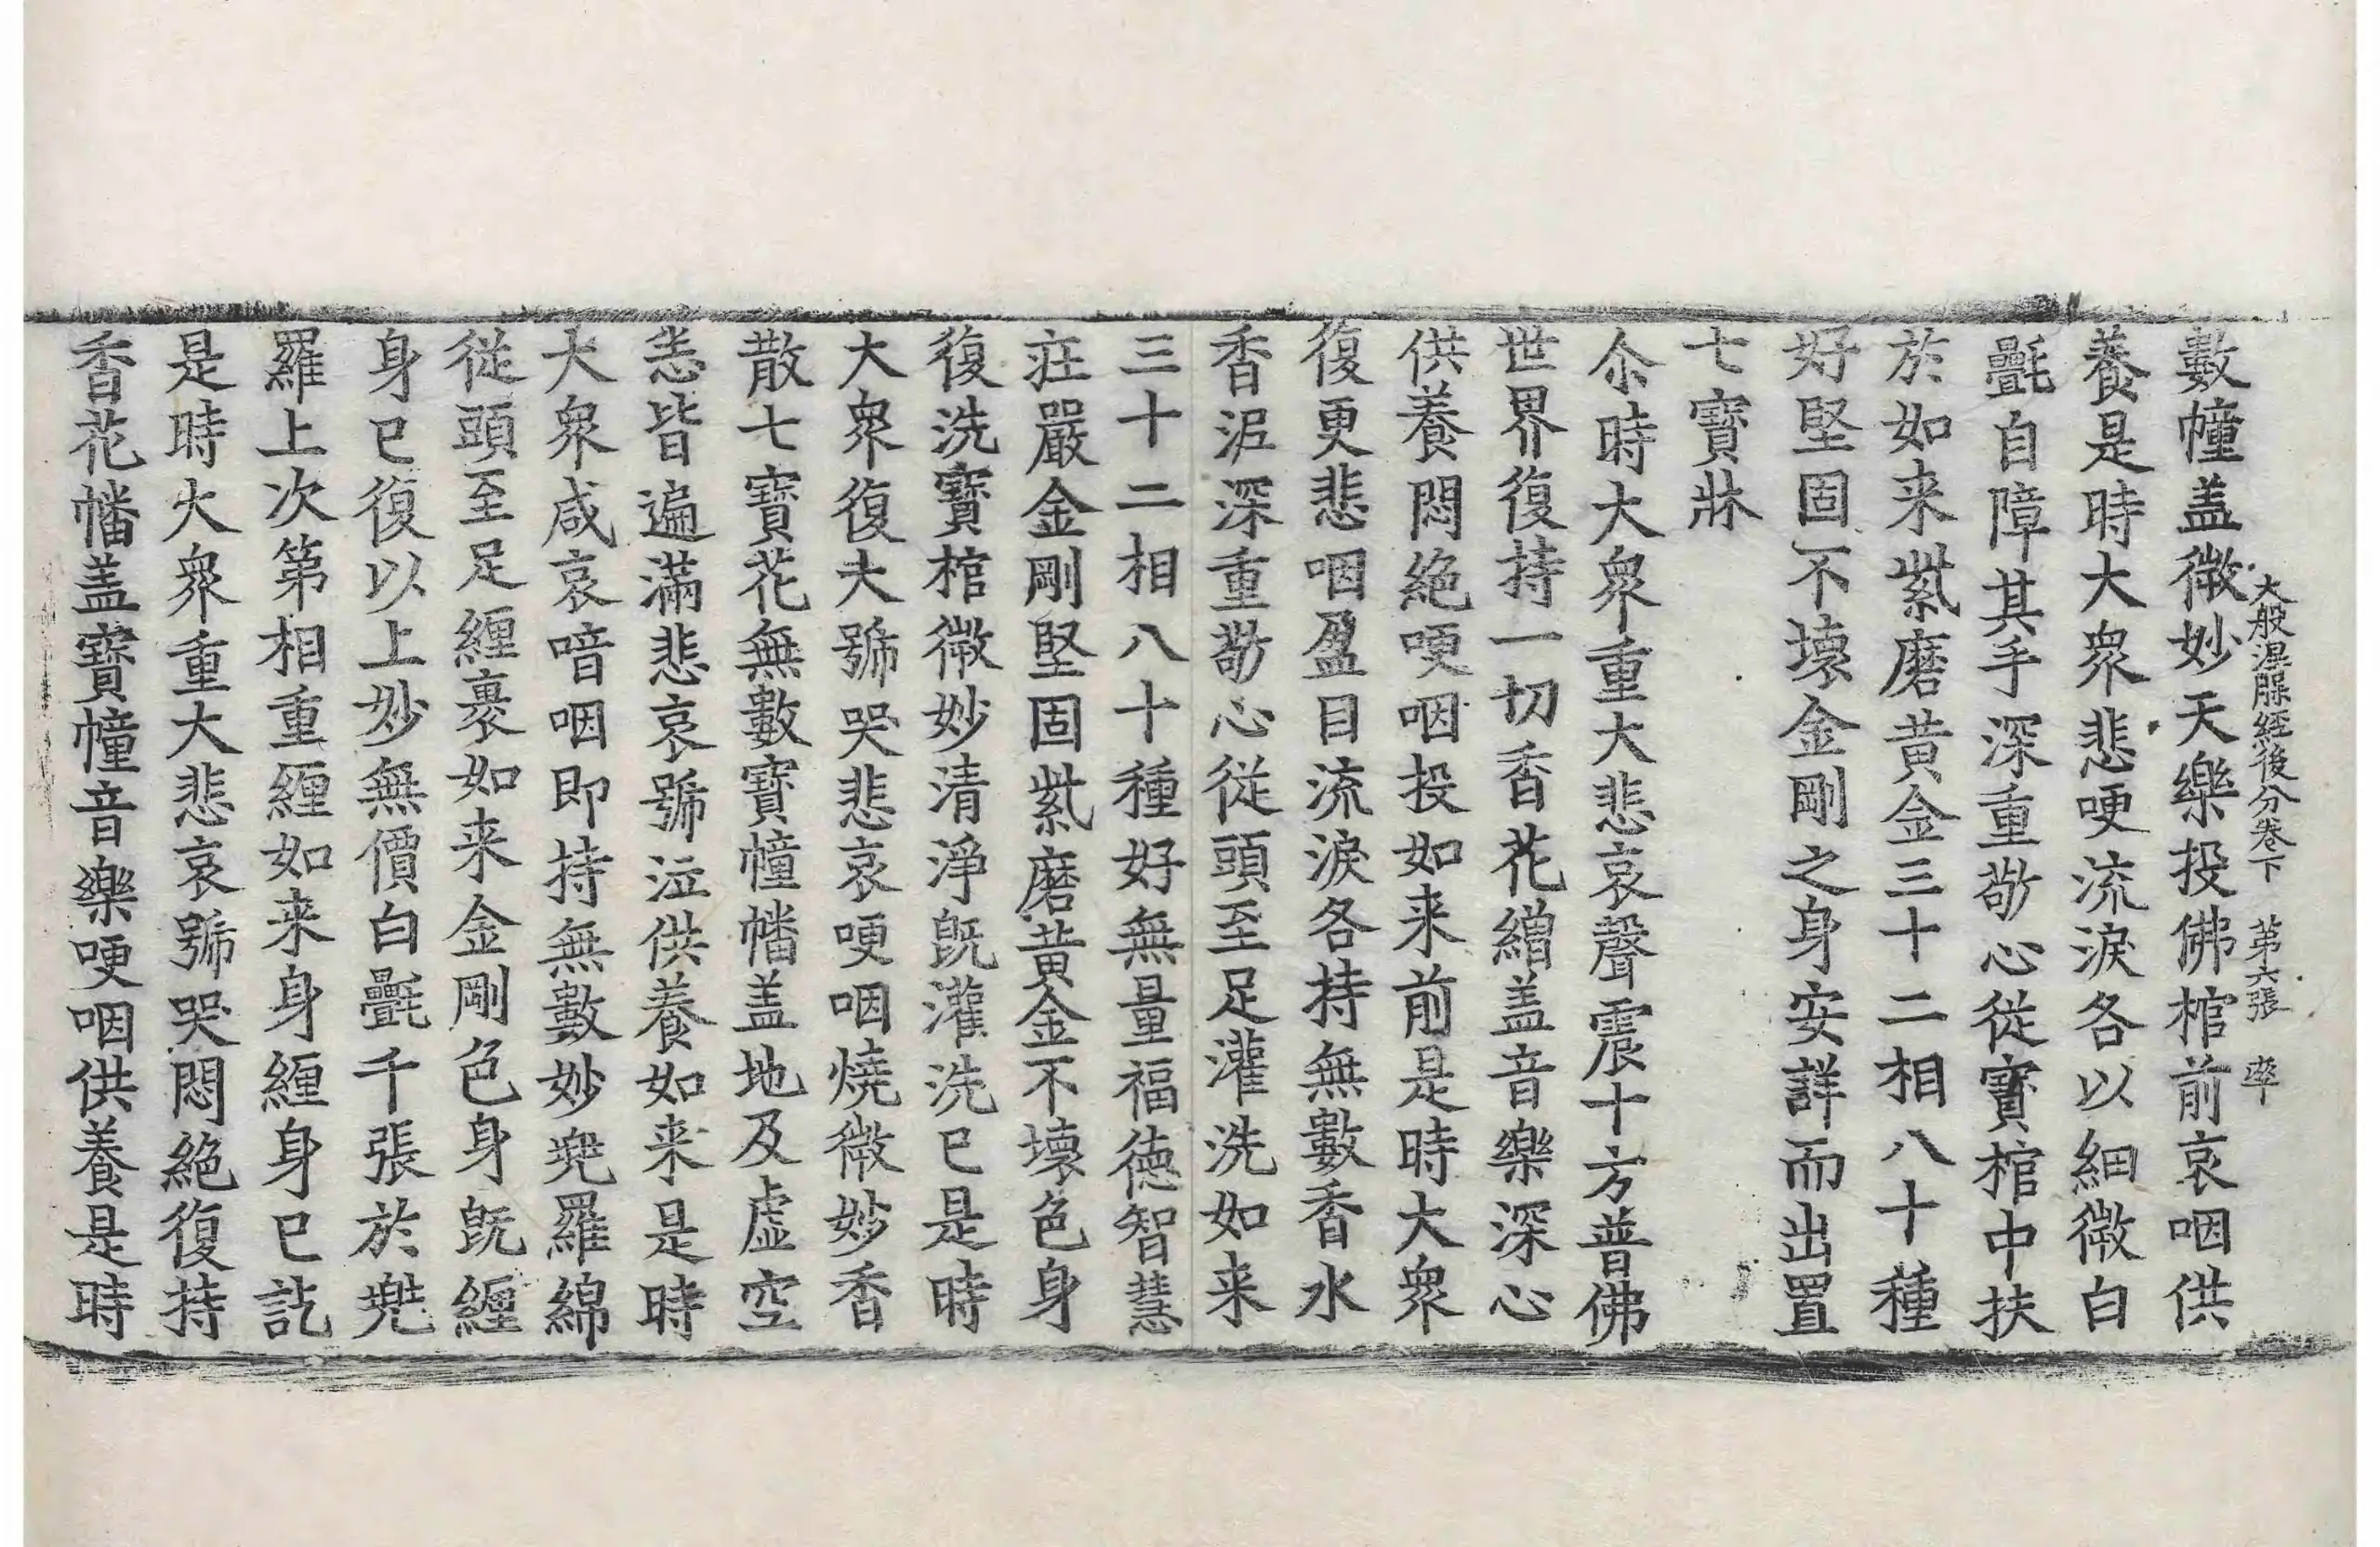 大般涅槃經後分卷下 第六張 率
數幢盖微妙天樂投佛棺前哀咽供
養是時大衆悲哽流淚各以細微白
㲲自障其手深重敬心從寶棺中扶
於如来紫磨黄金三十二相八十種
好堅固不壞金剛之身安詳而出置
七寶牀
尒時大衆重大悲哀聲震十方普佛
世界復持一切香花繒盖音樂深心
供養悶絶哽咽投如来前是時大衆
復更悲咽盈目流淚各持無數香水
香泥深重敬心從頭至足灌洗如来
三十二相八十種好無量福德智慧
莊嚴金剛堅固紫磨黄金不壞色身
復洗寶棺微妙清淨旣灌洗已是時
大衆復大號哭悲哀哽咽燒微妙香
散七寶花無數寶幢幡盖地及虛空
悉皆遍滿悲哀號泣供養如来是時
大衆咸哀喑咽即持無數妙兠羅綿
從頭至足纏裹如来金剛色身旣纏
身已復以上妙無價白㲲千張於兠
羅上次第相重纏如来身纏身已訖
是時大衆重大悲哀號哭悶絶復持
香花幡盖寶幢音樂哽咽供養是時